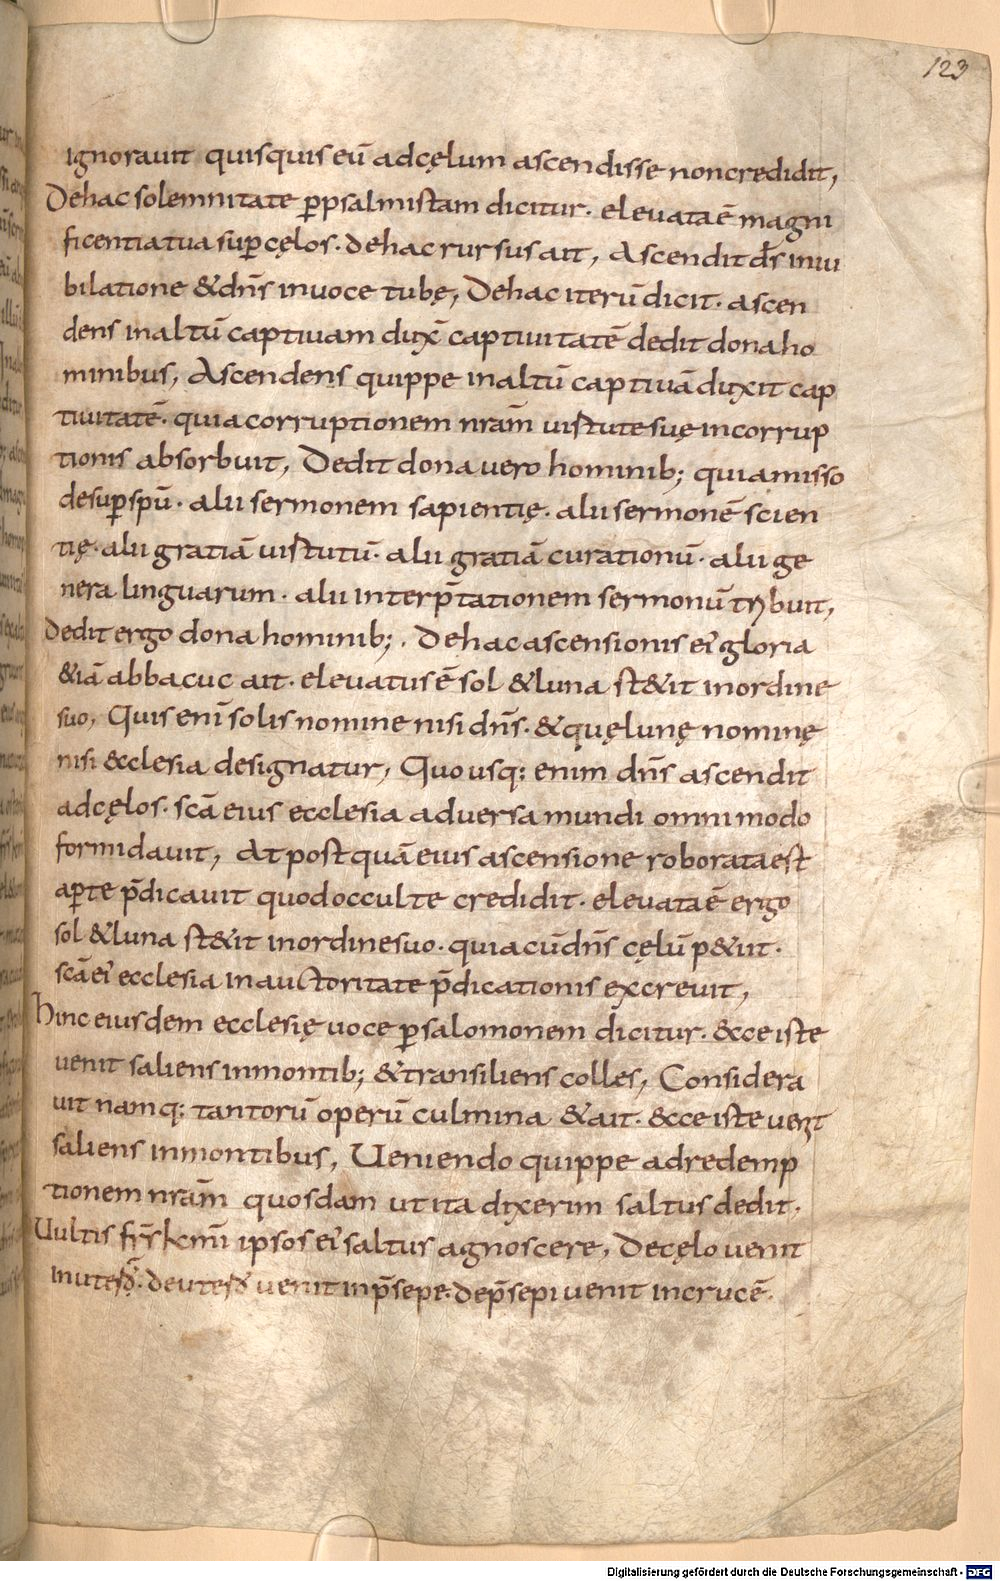 123
ignoravit quisquis eū adcęlum ascendisse noncredidit,
Dehac solemnitate ꝑpsalmistam dicitur· elevataē magni
ficentia tua suꝑcęlos· dehac rursus ait, Ascendit d̄s iniu
bilatione &dn̄s invoce tubę, Dehac iterū dicit· ascen
dens inaltū captivam dux̄ captivitatē dedit dona ho
minibus, Ascendens quippe inaltū captivā duxit cap
tivitatē· quia corruptionem nrām virtute suę incorrup
tionis absorbuit, Dedit dona vero hominib; quia misso
desuꝑ spū· alii sermonem sapientię· alii sermonē scien
tię· alii gratiā virtutū· alii gratiā curationū· alii ge
nera linguarum· alii interp̄tationem sermonū tribuit,
Dedit ergo dona hominib;· Dehac ascensionis ei' gloria
&iā abbacuc ait· elevatus ē sol &luna st&it inordine
suo, Quis enī solis nomine nisi dn̄s· &quę lunę nominę
nisi &cclesia designatur, Quousq: enim dn̄s ascendit
adcęlos· scā eius ecclesia adversa mundi omnimodo
formidavit, At postquā eius ascensione roborata est
aꝑte p̄dicavit quod occulte credidit· elevata ē ergo
sol &luna st&it inordine suo· quia cū dn̄s cęlū p&iit·
scā ei' ecclesia in auctoritate p̄dicationis excrevit,
Hinc eiusdem ecclesię voce ꝑ salomonem dicitur· &cce iste
venit saliens inmontib; &transiliens colles, Considera
vit namq: tantorū operū culmina &ait· &cce iste venit
saliens inmontibus, Veniendo quippe adredemp
tionem nrām quosdam ut ita dixerim saltus dedit,
Vultis fr̄s k̄mi ipsos ei' saltus agnoscere, De cęlo venit
in uterū· de utero venit inp̄sepe· dep̄sepi venit in crucē·
Digitalisierung gefördert durch die Deutsche Forschungsgemeinschaft - DFG